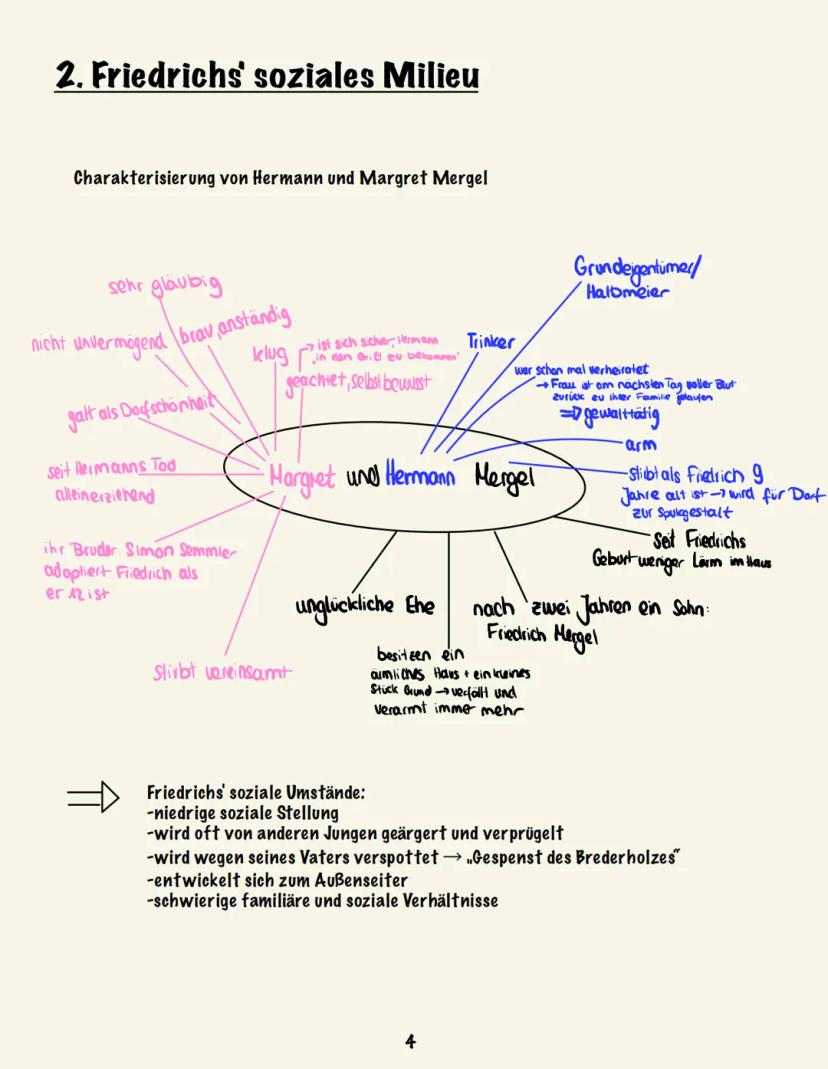 2. Friedrichs' soziales Milieu
Charakterisierung von Hermann und Margret Mergel
sehr gläubig
nicht unvermögend
brav, anständig
klug
→ ist sich sicher, Hermann
"in den Griff zu bekommen"
geachtet, selbstbewusst
galt als Dorfschönheit
seit Hermanns Tod
alleinerziehend
ihr Bruder Simon Semmler
adoptiert Friedrich als
er 12 ist
stirbt vereinsamt
Margret und Hermann Mergel
Trinker
Grundeigentümer/
Halbmeier
war schon mal verheiratet
→ Frau ist am nächsten Tag voller Blut
zurück zu ihrer Familie gelaufen
⇒ gewalttätig
arm
stirbt als Friedrich 9
Jahre alt ist → wird für Dorf
zur Spukgestalt
seit Friedrichs
Geburt weniger Lärm im Haus
unglückliche Ehe
nach zwei Jahren ein Sohn:
Friedrich Mergel
besitzen ein
ärmliches Haus + ein kleines
Stück Grund → verfällt und
verarmt immer mehr
Friedrichs' soziale Umstände:
-niedrige soziale Stellung
-wird oft von anderen Jungen geärgert und verprügelt
-wird wegen seines Vaters verspottet → „Gespenst des Brederholzes“
-entwickelt sich zum Außenseiter
-schwierige familiäre und soziale Verhältnisse
4